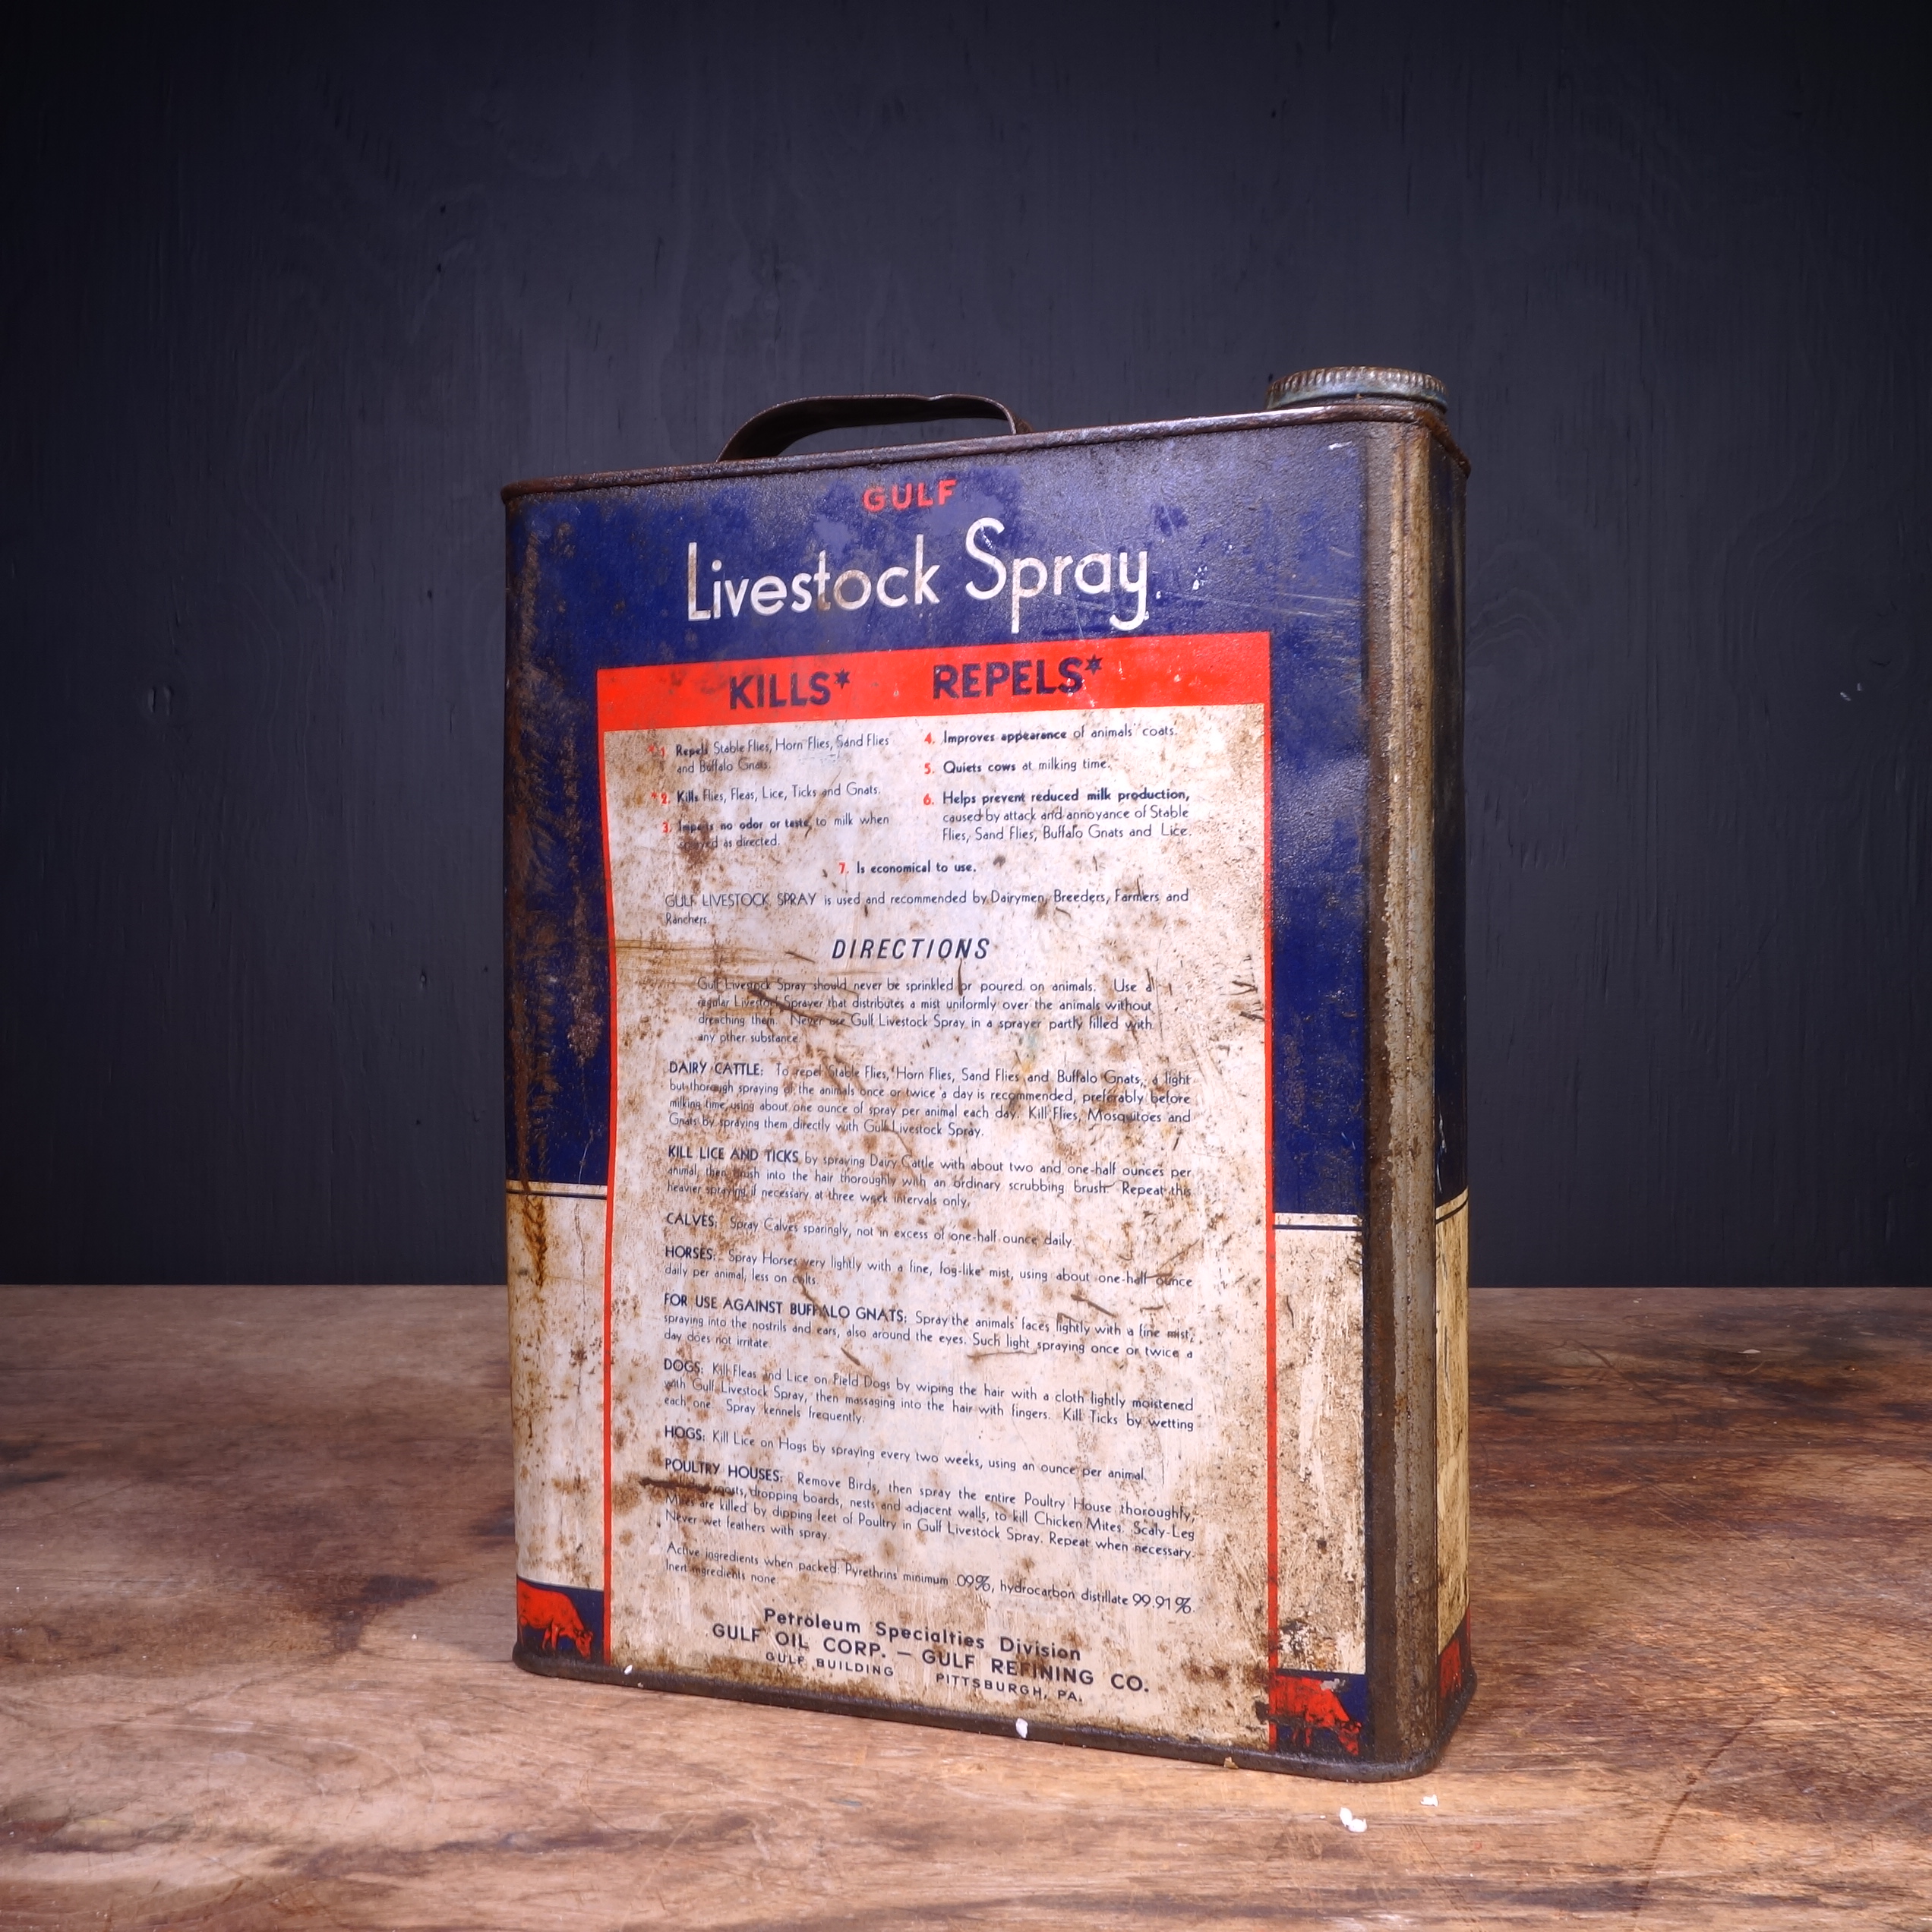 GULF
Livestock Spray
KILLS* REPELS*
*1. Repels Stable Flies, Horn Flies, Sand Flies
and Buffalo Gnats.
*2. Kills Flies, Fleas, Lice, Ticks and Gnats.
3. Imparts no odor or taste to milk when
sprayed as directed.
4. Improves appearance of animals' coats.
5. Quiets cows at milking time.
6. Helps prevent reduced milk production,
caused by attack and annoyance of Stable
Flies, Sand Flies, Buffalo Gnats and Lice.
7. Is economical to use.
GULF LIVESTOCK SPRAY is used and recommended by Dairymen, Breeders, Farmers and
Ranchers.
DIRECTIONS
Gulf Livestock Spray should never be sprinkled or poured on animals. Use a
regular Livestock Sprayer that distributes a mist uniformly over the animals without
drenching them. Never use Gulf Livestock Spray in a sprayer partly filled with
any other substance.
DAIRY CATTLE: To repel Stable Flies, Horn Flies, Sand Flies and Buffalo Gnats, a light
but thorough spraying of the animals once or twice a day is recommended, preferably before
milking time, using about one ounce of spray per animal each day. Kill Flies, Mosquitoes and
Gnats by spraying them directly with Gulf Livestock Spray.
KILL LICE AND TICKS by spraying Dairy Cattle with about two and one-half ounces per
animal, then brush into the hair thoroughly with an ordinary scrubbing brush. Repeat this
heavier spraying if necessary at three week intervals only.
CALVES: Spray Calves sparingly, not in excess of one-half ounce daily.
HORSES: Spray Horses very lightly with a fine, fog-like mist, using about one-half ounce
daily per animal, less on colts.
FOR USE AGAINST BUFFALO GNATS: Spray the animals' faces lightly with a fine mist,
spraying into the nostrils and ears, also around the eyes. Such light spraying once or twice a
day does not irritate.
DOGS: Kill Fleas and Lice on Field Dogs by wiping the hair with a cloth lightly moistened
with Gulf Livestock Spray, then massaging into the hair with fingers. Kill Ticks by wetting
each one. Spray kennels frequently.
HOGS: Kill Lice on Hogs by spraying every two weeks, using an ounce per animal.
POULTRY HOUSES: Remove Birds, then spray the entire Poultry House thoroughly,
roosts, dropping boards, nests and adjacent walls, to kill Chicken Mites. Scaly-Leg
Mites are killed by dipping feet of Poultry in Gulf Livestock Spray. Repeat when necessary.
Never wet feathers with spray.
Active ingredients when packed: Pyrethrins minimum .09%, hydrocarbon distillate 99.91%.
Inert ingredients none.
Petroleum Specialties Division
GULF OIL CORP. — GULF REFINING CO.
GULF BUILDING PITTSBURGH, PA.